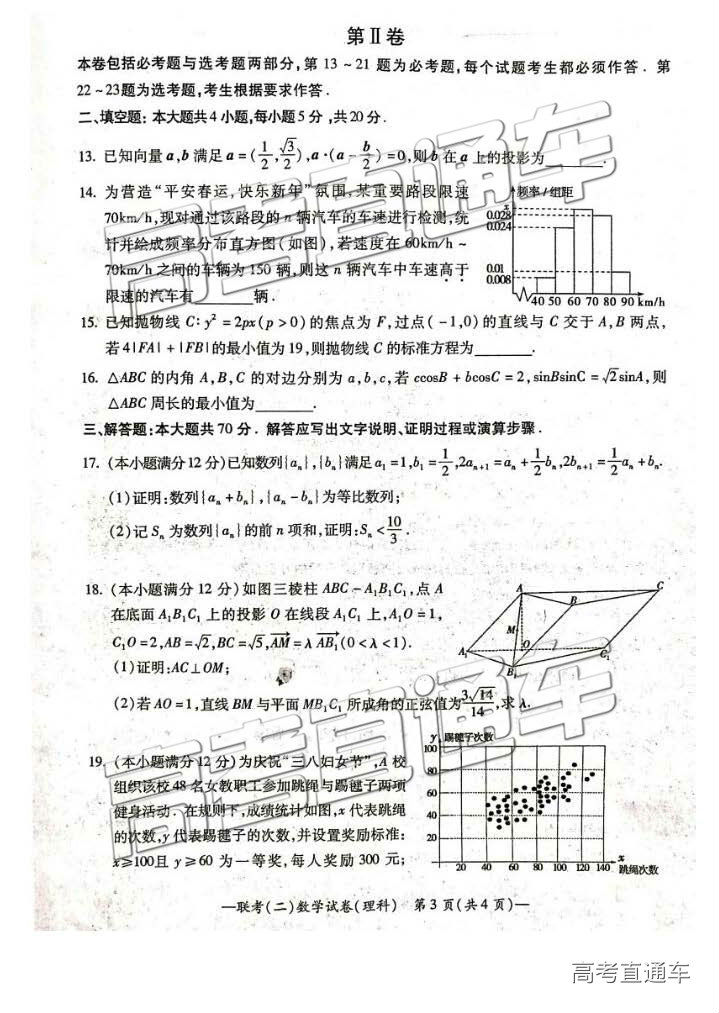 第Ⅱ卷
本卷包括必考题与选考题两部分,第 13～21 题为必考题,每个试题考生都必须作答．第
22～23题为选考题,考生根据要求作答．
二、填空题：本大题共4小题,每小题5分,共20分．
13. 已知向量 a,b 满足 a=(1/2,√3/2),a·(a-b/2)=0,则 b 在 a 上的投影为______．
14. 为营造“平安春运,快乐新年”氛围,某重要路段限速
70km/h,现对通过该路段的 n 辆汽车的车速进行检测,统
计并绘成频率分布直方图(如图),若速度在 60km/h～
70km/h 之间的车辆为 150 辆,则这 n 辆汽车中车速高于
限速的汽车有______辆．
频率/组距
0.028
0.024
0.01
0.008
40 50 60 70 80 90 km/h
15. 已知抛物线 C：y²=2px(p>0)的焦点为 F,过点(-1,0)的直线与 C 交于 A,B 两点,
若4|FA|+|FB|的最小值为19,则抛物线 C 的标准方程为______．
16. △ABC 的内角 A,B,C 的对边分别为 a,b,c,若 ccosB+bcosC=2,sinBsinC=√2sinA,则
△ABC 周长的最小值为______．
三、解答题：本大题共70分．解答应写出文字说明、证明过程或演算步骤．
17. (本小题满分12分)已知数列{aₙ},{bₙ}满足a₁=1,b₁=1/2,2aₙ₊₁=aₙ+1/2bₙ,2bₙ₊₁=1/2aₙ+bₙ.
(1)证明：数列{aₙ+bₙ},{aₙ-bₙ}为等比数列；
(2)记 Sₙ 为数列{aₙ}的前 n 项和,证明：Sₙ<10/3．
18. (本小题满分12分)如图三棱柱 ABC-A₁B₁C₁,点 A
在底面 A₁B₁C₁ 上的投影 O 在线段 A₁C₁ 上,A₁O=1,
C₁O=2,AB=√2,BC=√5,AM→=λAB₁→(0<λ<1).
(1)证明：AC⊥OM；
(2)若 AO=1,直线 BM 与平面 MB₁C₁ 所成角的正弦值为3√14/14,求 λ.
A
B
C
M
O
A₁
B₁
C₁
19. (本小题满分12分)为庆祝“三八妇女节”,A 校
组织该校48名女教职工参加跳绳与踢毽子两项
健身活动．在规则下,成绩统计如图,x 代表跳绳
的次数,y 代表踢毽子的次数,并设置奖励标准：
x≥100且 y≥60 为一等奖,每人奖励 300 元；
y 踢毽子次数
100
80
60
40
20
20 40 60 80 100 120 140
x
跳绳次数
—联考(二)数学试卷(理科) 第3页(共4页)—
高考直通车
高考直通车
高考直通车